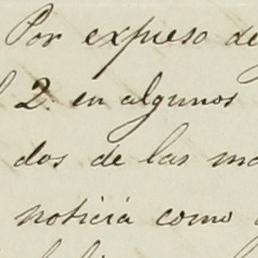 Por expreso de
2. en algunos
dos de las
noticia como